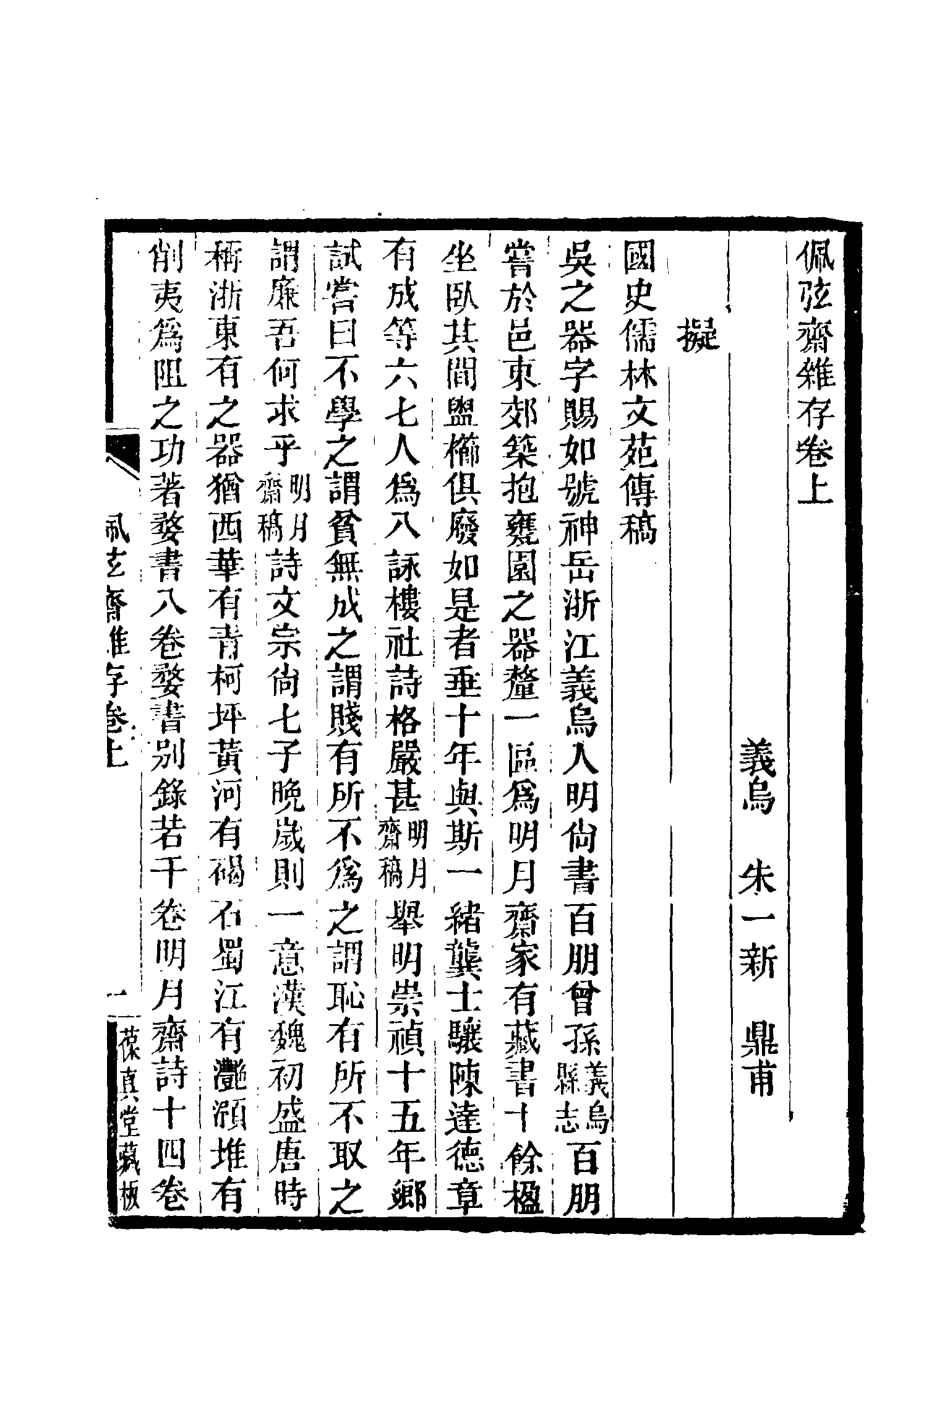 佩弦齋雜存卷上
義烏　朱一新　鼎甫
擬
國史儒林文苑傳稿
吳之器字賜如號神岳浙江義烏人明尙書百朋曾孫義烏縣志百朋
嘗於邑東郊築抱甕園之器釐一區爲明月齋家有藏書十餘楹
坐臥其間盥櫛俱廢如是者垂十年與斯一緒龔士驤陳達德章
有成等六七人爲八詠樓社詩格嚴甚明月齋稿舉明崇禎十五年鄉
試嘗曰不學之謂貧無成之謂賤有所不爲之謂恥有所不取之
謂廉吾何求乎明月齋稿詩文宗尙七子晚歲則一意漢魏初盛唐時
稱浙東有之器猶西華有青柯坪黃河有碣石蜀江有灩澦堆有
削夷爲阻之功著婺書八卷婺書別錄若干卷明月齋詩十四卷
佩弦齋雜存卷上
一
葆真堂藏板